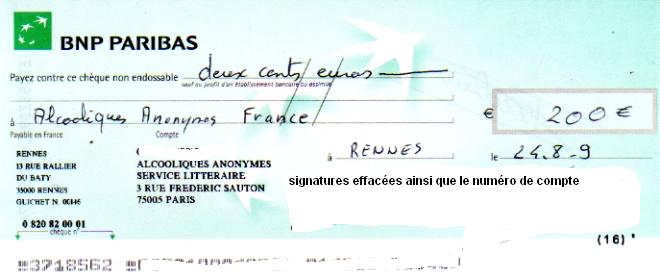 BNP PARIBAS
Payez contre ce chèque non endossable deux cents/euros
sauf au profit d'un établissement bancaire ou assimilé
à Alcooliques Anonymes France
€ 200 €
Payable en France
Compte
à RENNES
le 24.8-9
RENNES
13 RUE RALLIER
DU BATY
35000 RENNES
GUICHET N. 00146
ALCOOLIQUES ANONYMES
SERVICE LITTERAIRE
3 RUE FREDERIC SAUTON
75005 PARIS
signatures effacées ainsi que le numéro de compte
0 820 82 00 01
chèque n°
(16)
3718562